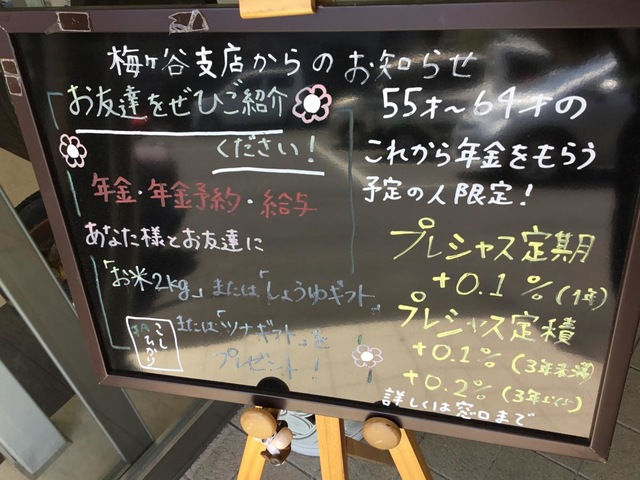 梅ヶ谷支店からのお知らせ
お友達をぜひご紹介
ください!
年金・年金予約・給与
あなた様とお友達に
「お米2kg」または「しょうゆギフト」
または「ツナギフト」を
プレゼント!
JA
こしひかり
55才～64才の
これから年金をもらう
予定の人限定!
プレシャス定期
+0.1%(1年)
プレシャス定積
+0.1%(3年未満)
+0.2%(3年以上)
詳しくは窓口まで